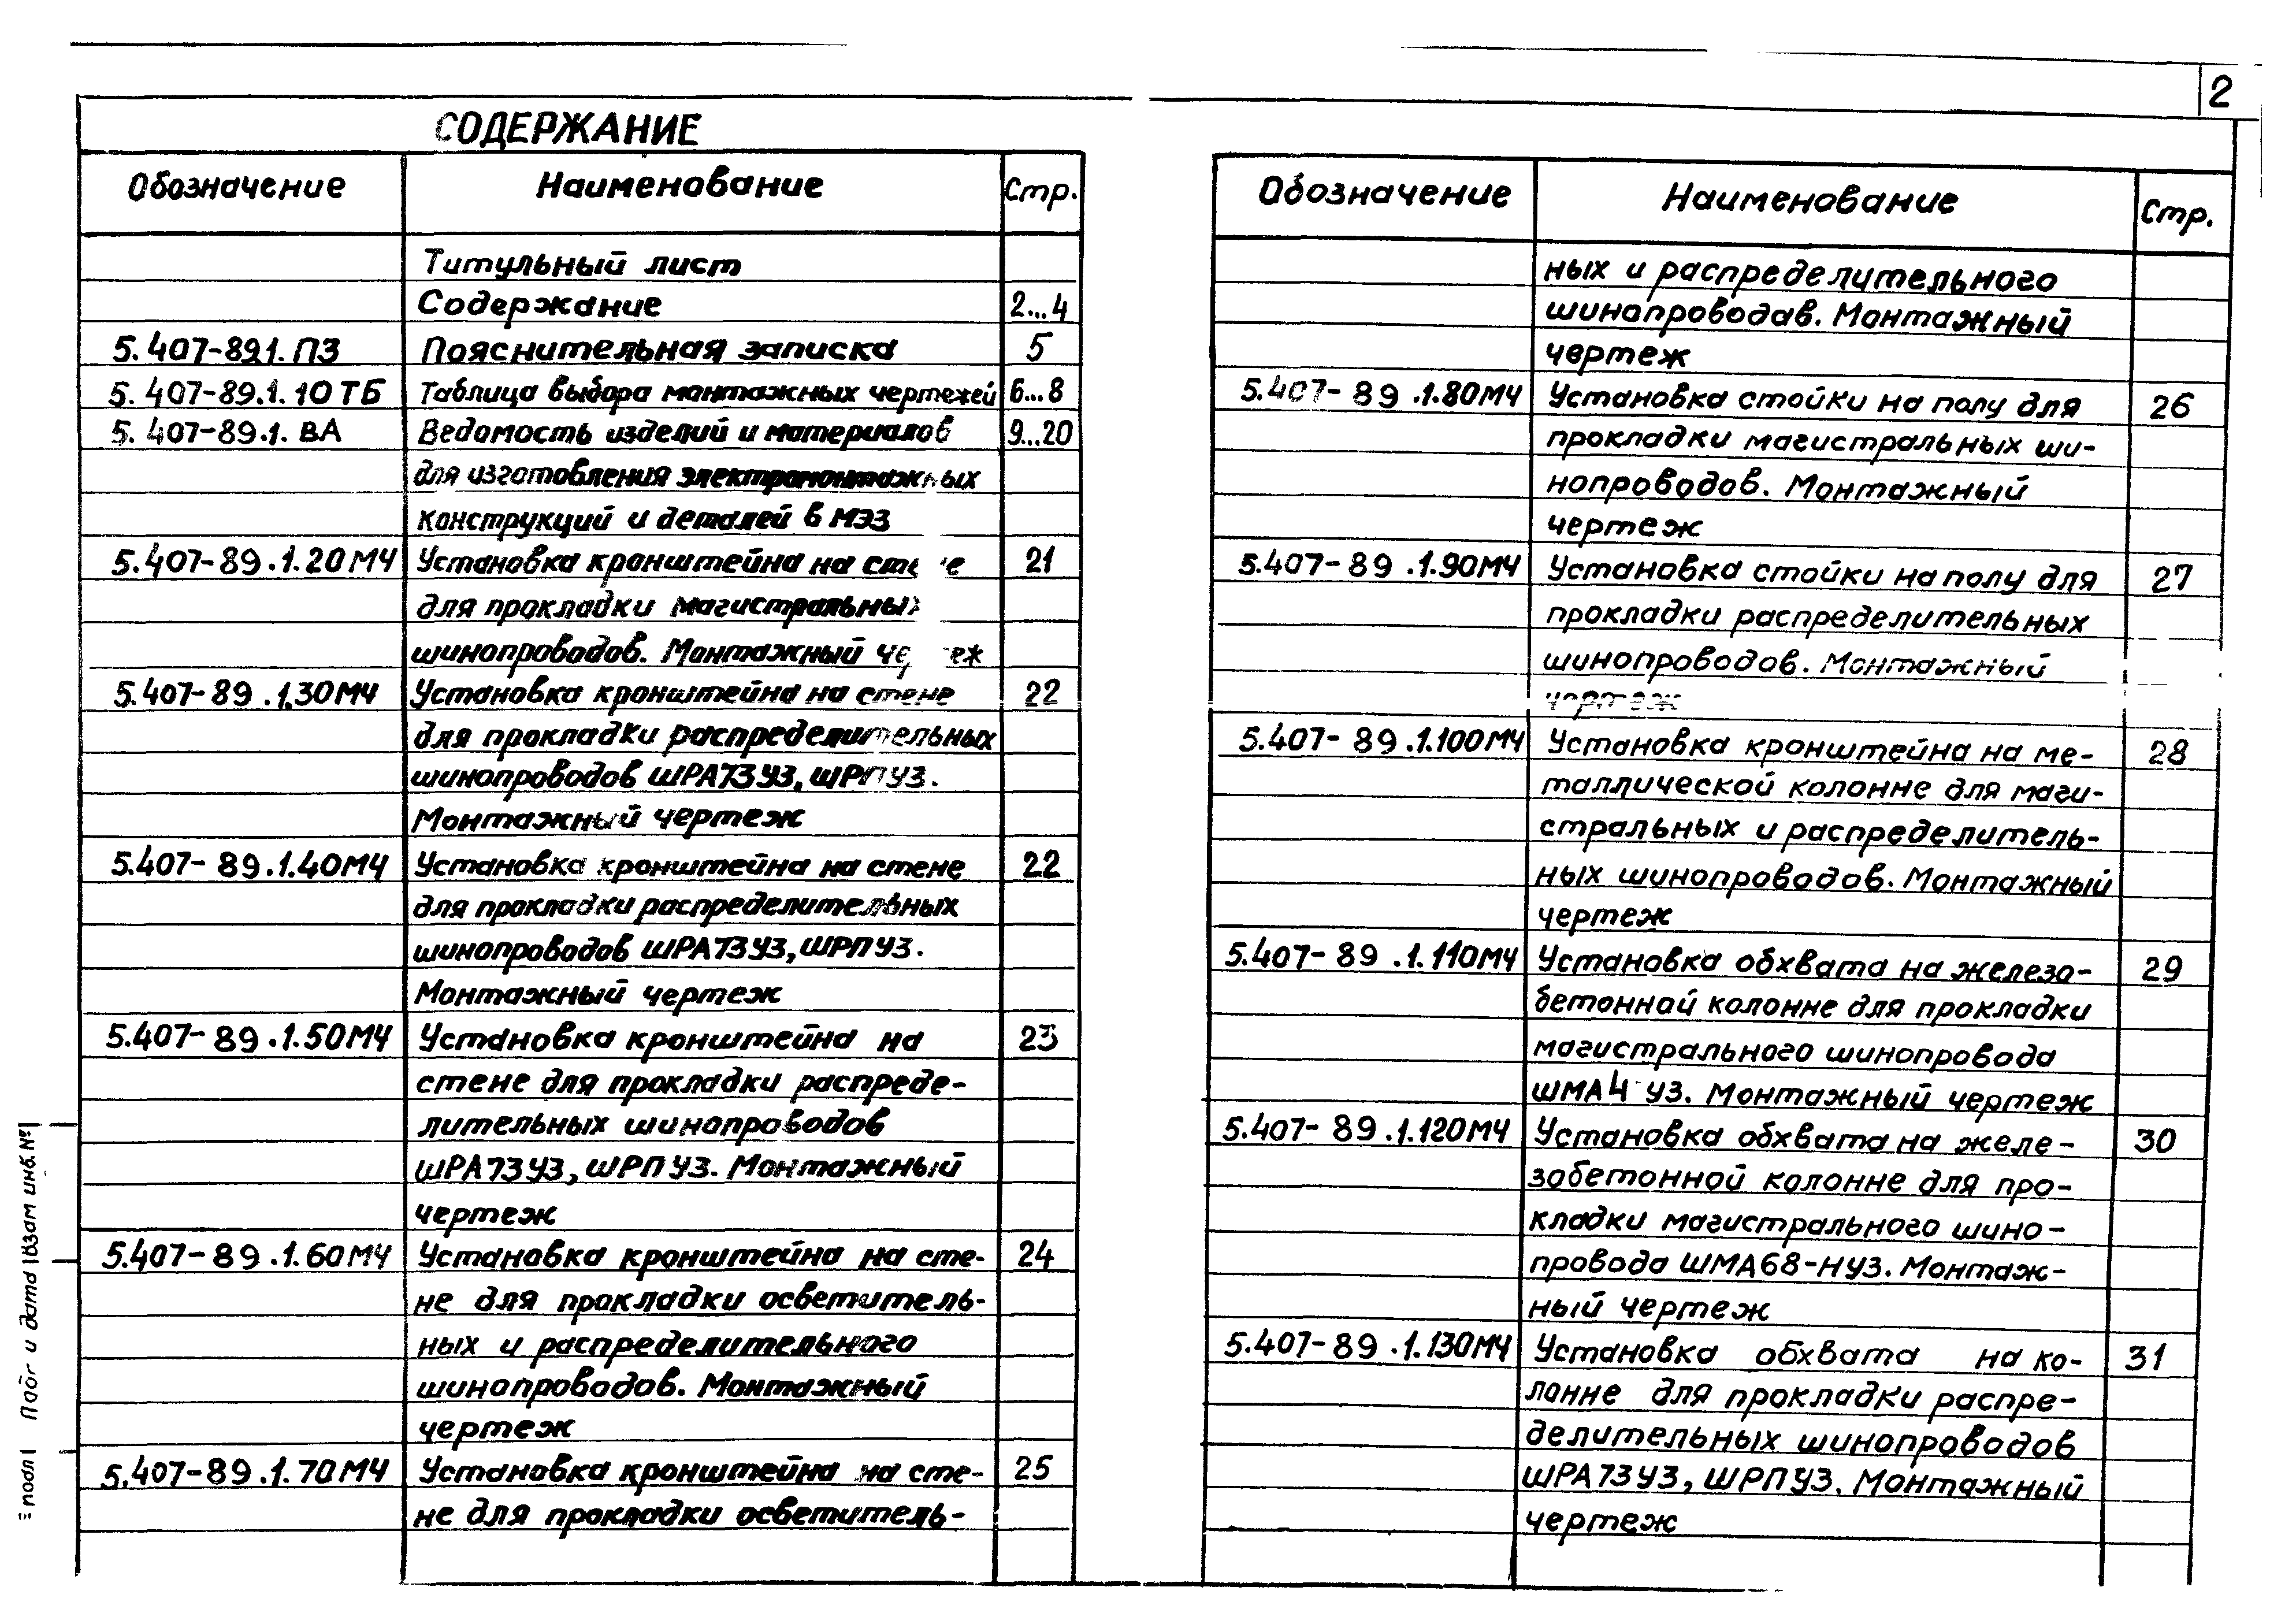 2
СОДЕРЖАНИЕ
Обозначение Наименование Стр.
Титульный лист
Содержание 2...4
5.407-89.1.ПЗ Пояснительная записка 5
5.407-89.1.10ТБ Таблица выбора монтажных чертежей 6...8
5.407-89.1.ВА Ведомость изделий и материалов 9...20
для изготовления электромонтажных
конструкций и деталей в МЭЗ
5.407-89.1.20МЧ Установка кронштейна на стене 21
для прокладки магистральных
шинопроводов. Монтажный чертеж
5.407-89.1.30МЧ Установка кронштейна на стене 22
для прокладки распределительных
шинопроводов ШРА73У3, ШРПУ3.
Монтажный чертеж
5.407-89.1.40МЧ Установка кронштейна на стене 22
для прокладки распределительных
шинопроводов ШРА73У3, ШРПУ3.
Монтажный чертеж
5.407-89.1.50МЧ Установка кронштейна на 23
стене для прокладки распреде-
лительных шинопроводов
ШРА73У3, ШРПУ3. Монтажный
чертеж
5.407-89.1.60МЧ Установка кронштейна на сте- 24
не для прокладки осветитель-
ных и распределительного
шинопроводов. Монтажный
чертеж
5.407-89.1.70МЧ Установка кронштейна на сте- 25
не для прокладки осветитель-
Обозначение Наименование Стр.
ных и распределительного
шинопроводов. Монтажный
чертеж
5.407-89.1.80МЧ Установка стойки на полу для 26
прокладки магистральных ши-
нопроводов. Монтажный
чертеж
5.407-89.1.90МЧ Установка стойки на полу для 27
прокладки распределительных
шинопроводов. Монтажный
чертеж
5.407-89.1.100МЧ Установка кронштейна на ме- 28
таллической колонне для маги-
стральных и распределитель-
ных шинопроводов. Монтажный
чертеж
5.407-89.1.110МЧ Установка обхвата на железо- 29
бетонной колонне для прокладки
магистрального шинопровода
ШМА4 У3. Монтажный чертеж
5.407-89.1.120МЧ Установка обхвата на желе- 30
зобетонной колонне для про-
кладки магистрального шино-
провода ШМА68-НУ3. Монтаж-
ный чертеж
5.407-89.1.130МЧ Установка обхвата на ко- 31
лонне для прокладки распре-
делительных шинопроводов
ШРА73У3, ШРПУ3. Монтажный
чертеж
подл
Подп и дата
Взам инв. №